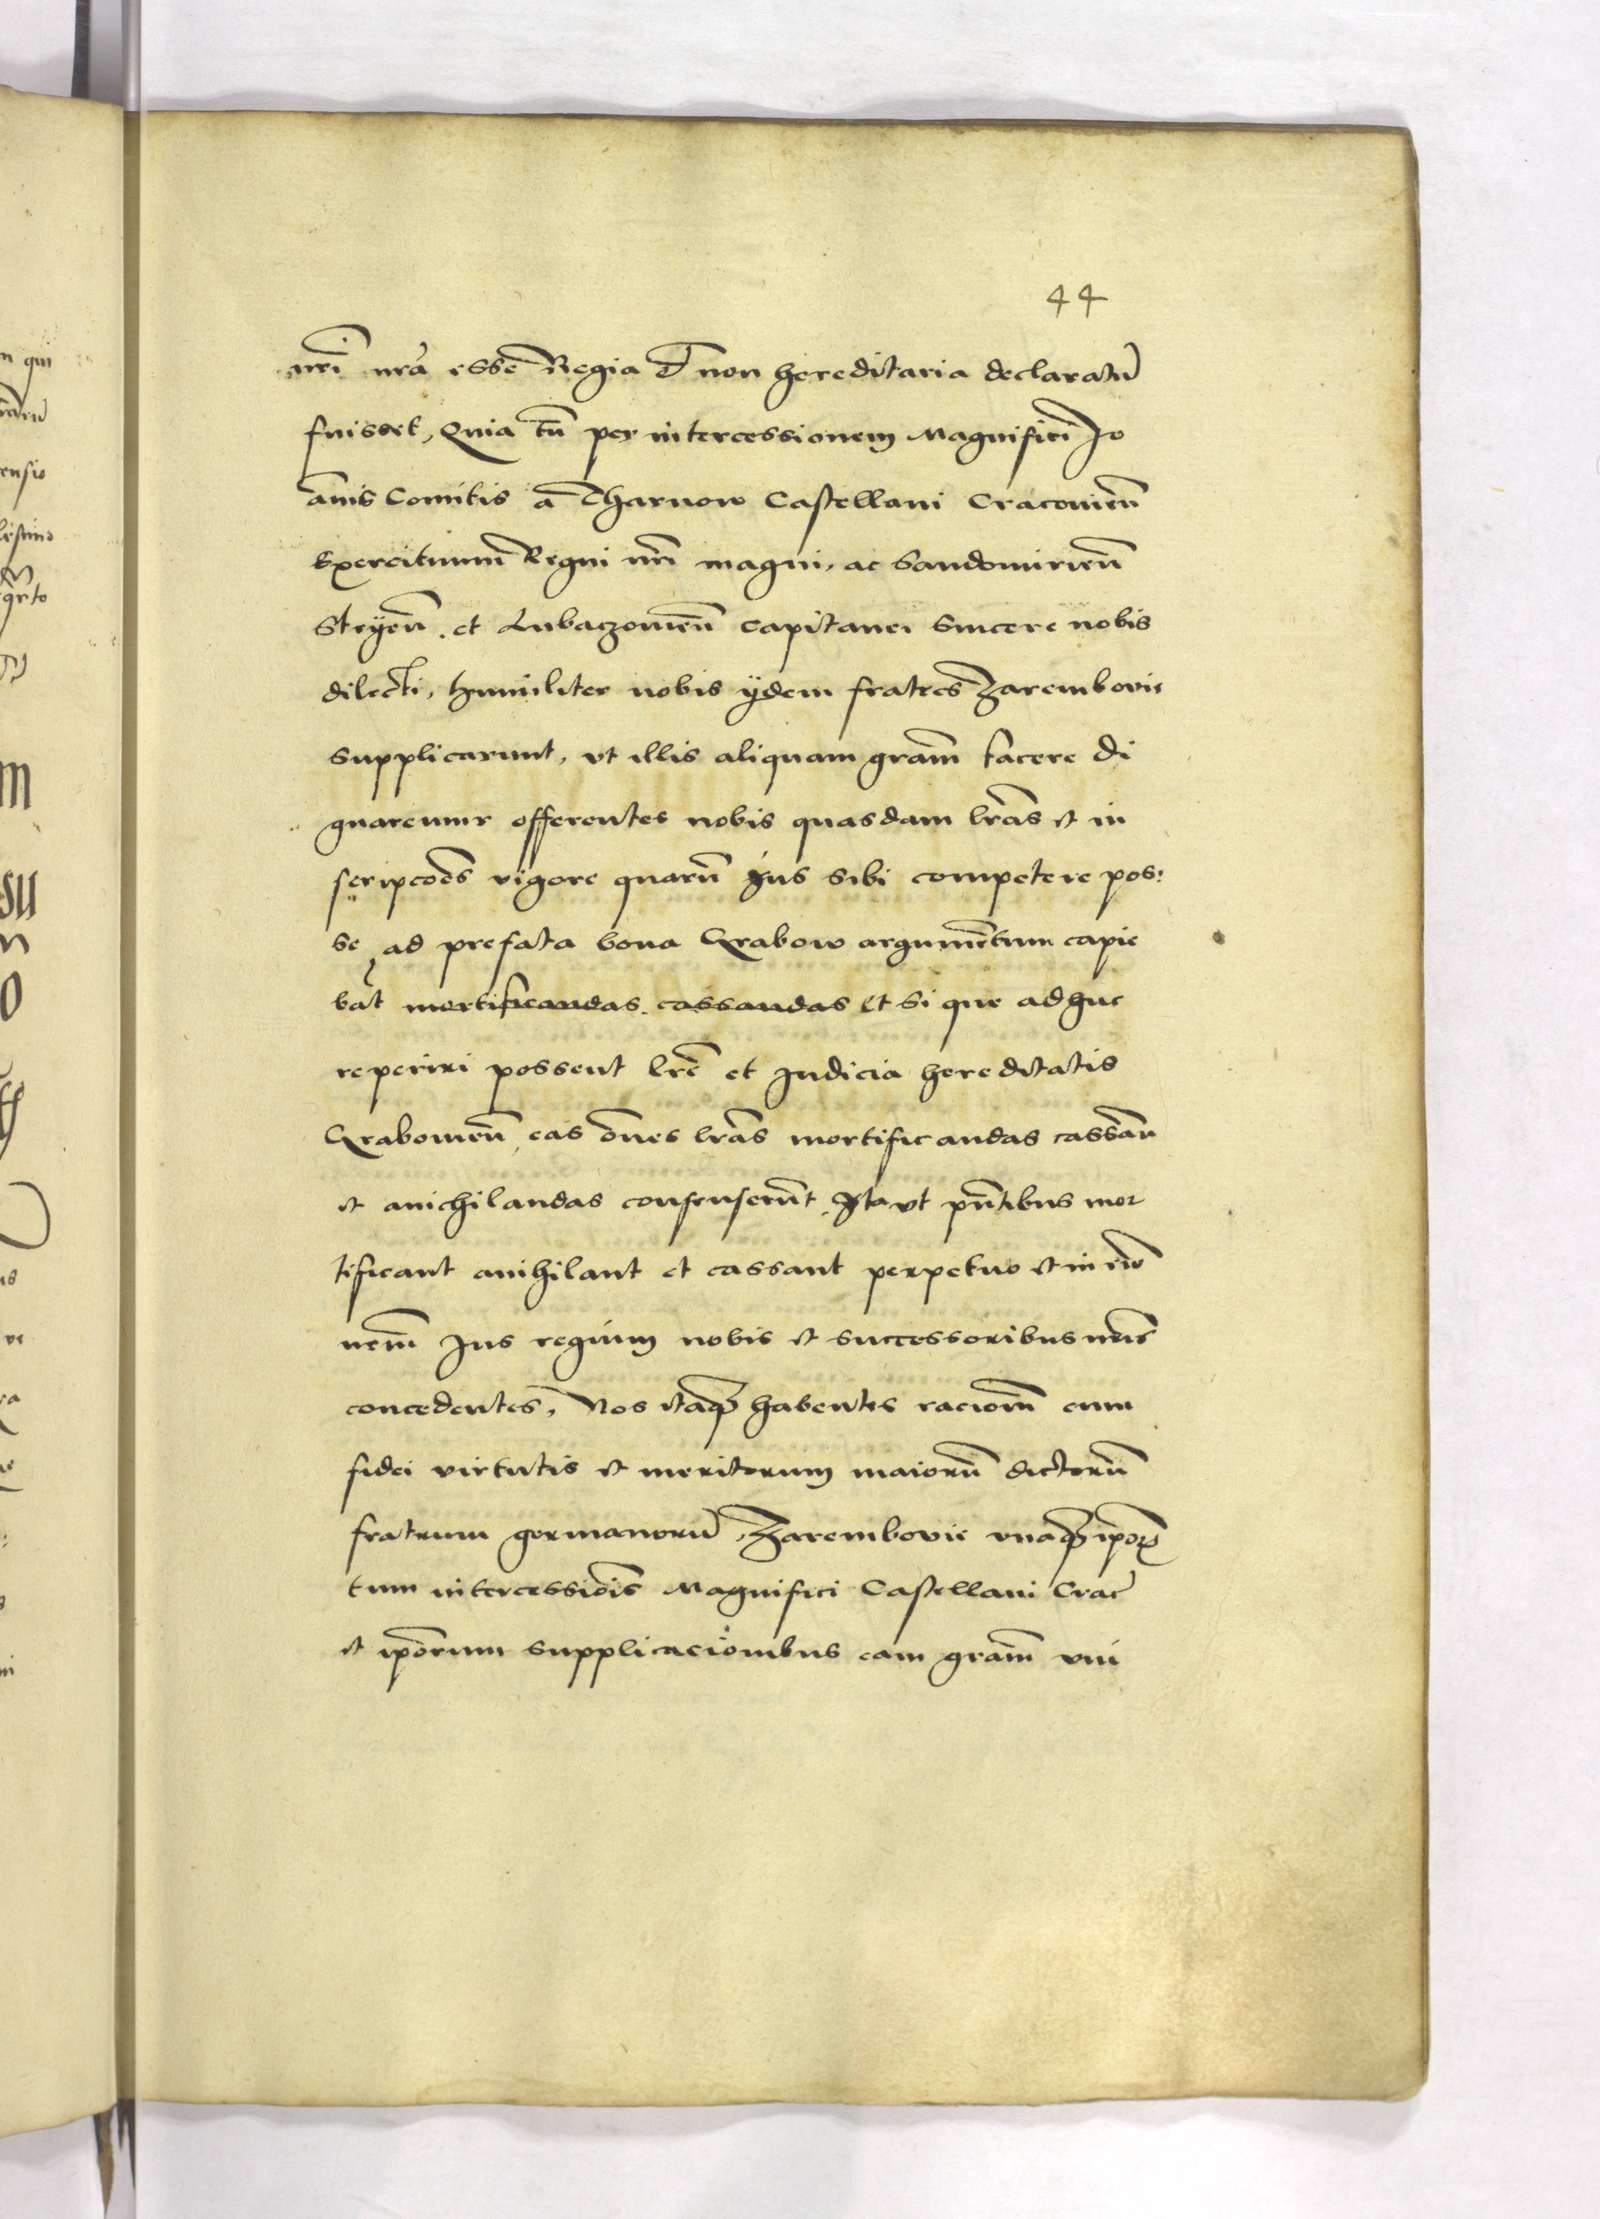 44
nr̄i nr̄a esse Regia et non hereditaria declaratū
fuisset, Quia tn̄ per intercessionem Magnifici Jo
ānis Comitis a Tharnow Castellani Cracovien̄
Exercituum Regni nr̄i magni, ac Sandomirien̄
Stryen̄ . et Lubaczovien̄ capitanei sincere nobis
dilecti, humiliter nobis ÿdem fratres Zarembovie
supplicarunt, vt illis aliquam grām facere di
gnaremur offerentes nobis quasdam lr̄as et in
scripcoēs vigore quarū Jus sibi competere pos:
se ad prefata bona Grabow argumētum capie
bāt mortificandas . cassandas et si que adhuc
reperiri possent lr̄e et Indicia hereditatis
Grabovien̄, eas ōnes lr̄as mortificandas cassan̄
et anichilandas consenserūt . Ita vt pn̄tibus mor
tificant anihilant et cassant perpetuo et in
nem̄ Jus regium nobis et successoribus nr̄is
concedentes, Nos itaq habentes raciom̄ cum
fidei virtutis et meritorum maiorū dictorū
fratrum germanorū, Zarembovie vnaq ipor
tum intercessiōis Magnifici Castellani Crac̄
et ip̄orum supplicacionibus eam grām vni